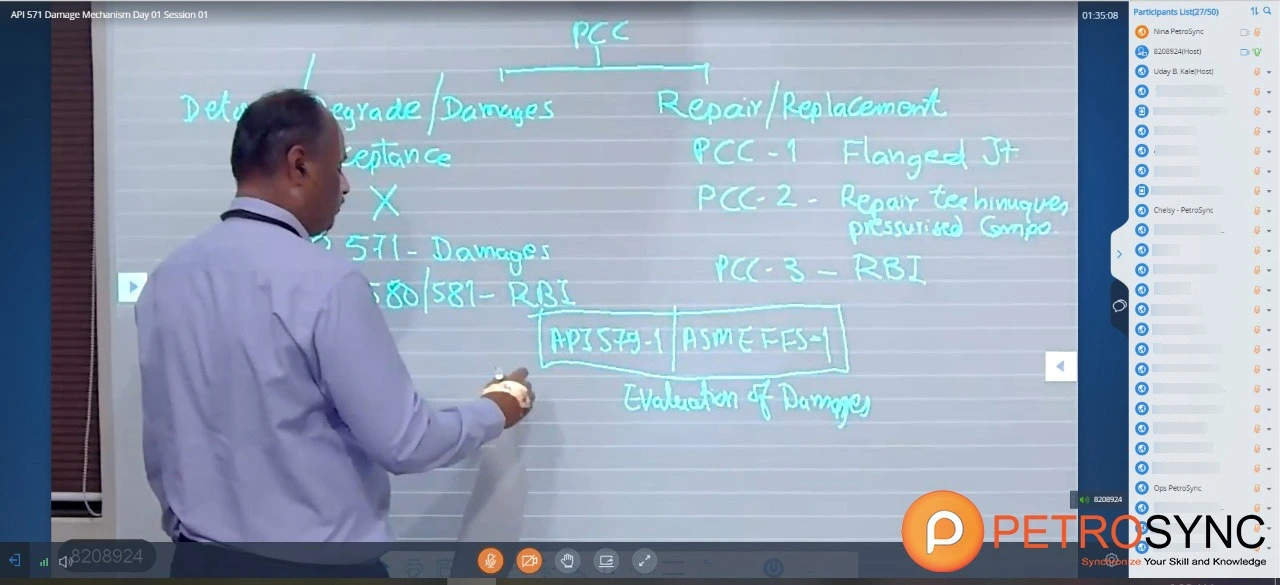 API 571 Damage Mechanism Day 01 Session 01
01:35:08
Participants List(27/50)
Nina PetroSync
8208924(Host)
Uday B. Kale(Host)
Chelsy - PetroSync
Ops PetroSync
PCC
egrade/Damages
Repair/Replacement
eptance
X
PCC-1 Flanged Jt
PCC-2 - Repair techinuques
pressurised Compo.
571 - Damages
PCC-3 - RBI
580/581 - RBI
API 579-1 ASME FFS-1
Evaluation of Damages
8208924
8208924
PETROSYNC
Synchronize Your Skill and Knowledge